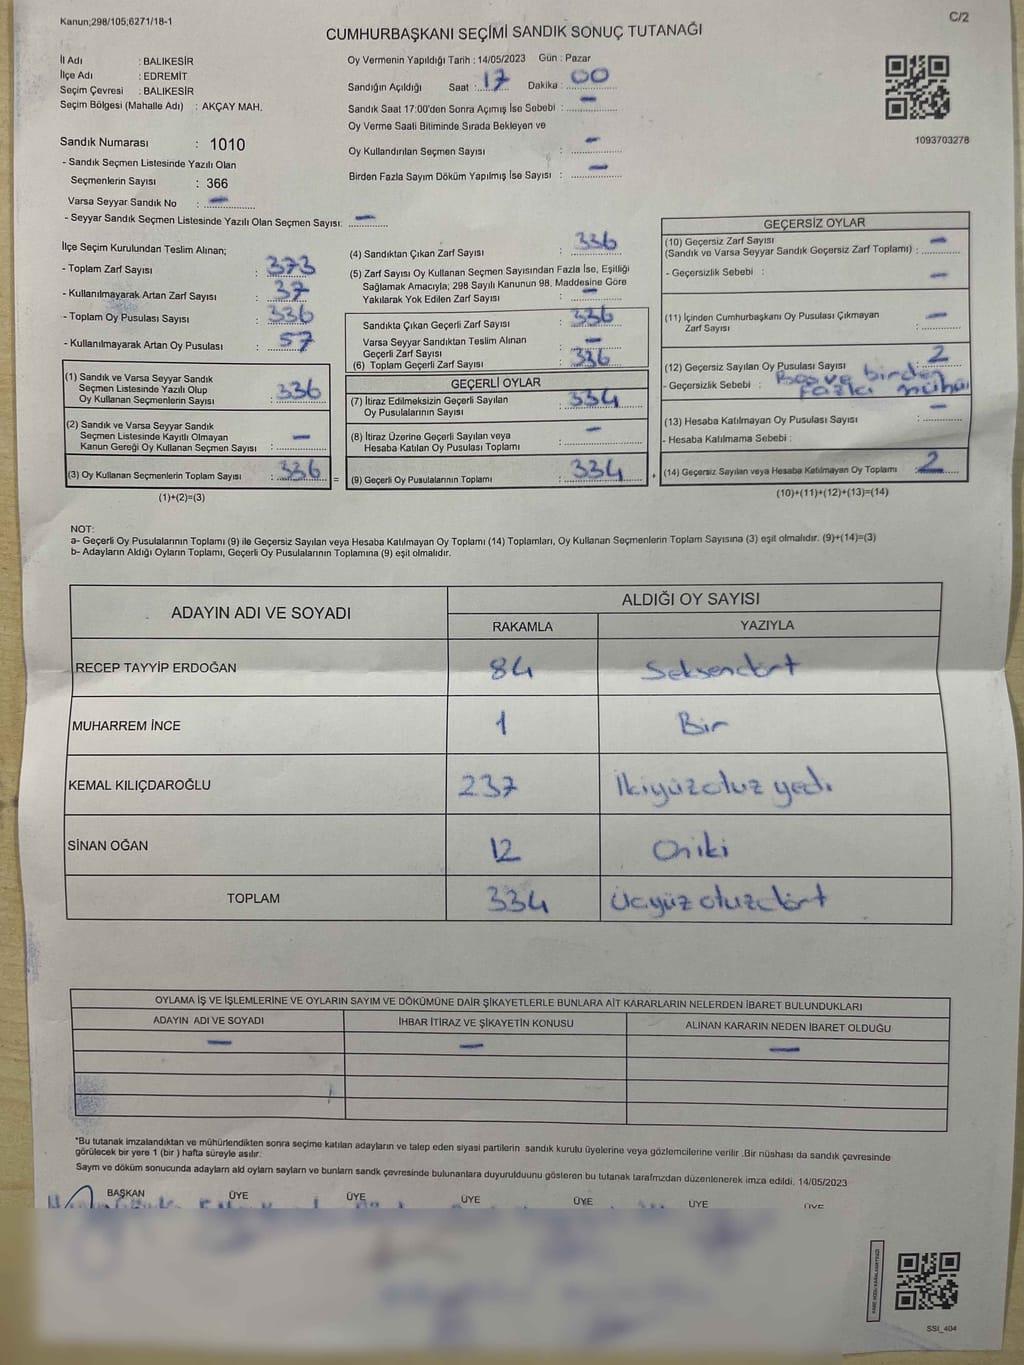 Kanun;298/105;6271/18-1
C/2
CUMHURBAŞKANI SEÇİMİ SANDIK SONUÇ TUTANAĞI
İl Adı : BALIKESİR
İlçe Adı : EDREMİT
Seçim Çevresi : BALIKESİR
Seçim Bölgesi (Mahalle Adı) : AKÇAY MAH.
Sandık Numarası : 1010
- Sandık Seçmen Listesinde Yazılı Olan
Seçmenlerin Sayısı : 366
Varsa Seyyar Sandık No : —
- Seyyar Sandık Seçmen Listesinde Yazılı Olan Seçmen Sayısı: —
Oy Vermenin Yapıldığı Tarih : 14/05/2023 Gün : Pazar
Sandığın Açıldığı Saat : 17 Dakika : 00
Sandık Saat 17:00'den Sonra Açımış İse Sebebi : —
Oy Verme Saati Bitiminde Sırada Bekleyen ve
Oy Kullandırılan Seçmen Sayısı : —
Birden Fazla Sayım Döküm Yapılmış İse Sayısı : —
1093703278
İlçe Seçim Kurulundan Teslim Alınan;
- Toplam Zarf Sayısı : 373
- Kullanılmayarak Artan Zarf Sayısı : 37
- Toplam Oy Pusulası Sayısı : 336
- Kullanılmayarak Artan Oy Pusulası : 57
(1) Sandık ve Varsa Seyyar Sandık
Seçmen Listesinde Yazılı Olup
Oy Kullanan Seçmenlerin Sayısı : 336
(2) Sandık ve Varsa Seyyar Sandık
Seçmen Listesinde Kayıtlı Olmayan
Kanun Gereği Oy Kullanan Seçmen Sayısı : —
(3) Oy Kullanan Seçmenlerin Toplam Sayısı : 336 =
(1)+(2)=(3)
(4) Sandıktan Çıkan Zarf Sayısı : 336
(5) Zarf Sayısı Oy Kullanan Seçmen Sayısından Fazla İse, Eşitliği
Sağlamak Amacıyla; 298 Sayılı Kanunun 98. Maddesine Göre
Yakılarak Yok Edilen Zarf Sayısı : —
Sandıkta Çıkan Geçerli Zarf Sayısı : 336
Varsa Seyyar Sandıktan Teslim Alınan
Geçerli Zarf Sayısı : —
(6) Toplam Geçerli Zarf Sayısı : 336
GEÇERLİ OYLAR
(7) İtiraz Edilmeksizin Geçerli Sayılan
Oy Pusulalarının Sayısı : 334
(8) İtiraz Üzerine Geçerli Sayılan veya
Hesaba Katılan Oy Pusulası Toplamı : —
(9) Geçerli Oy Pusulalarının Toplamı : 334 +
GEÇERSİZ OYLAR
(10) Geçersiz Zarf Sayısı
(Sandık ve Varsa Seyyar Sandık Geçersiz Zarf Toplamı) : —
- Geçersizlik Sebebi : —
(11) İçinden Cumhurbaşkanı Oy Pusulası Çıkmayan
Zarf Sayısı : —
(12) Geçersiz Sayılan Oy Pusulası Sayısı : 2
- Geçersizlik Sebebi : Boş ve birden
fazla mühür
(13) Hesaba Katılmayan Oy Pusulası Sayısı : —
- Hesaba Katılmama Sebebi :
(14) Geçersiz Sayılan veya Hesaba Katılmayan Oy Toplamı : 2
(10)+(11)+(12)+(13)=(14)
NOT:
a- Geçerli Oy Pusulalarının Toplamı (9) ile Geçersiz Sayılan veya Hesaba Katılmayan Oy Toplamı (14) Toplamları, Oy Kullanan Seçmenlerin Toplam Sayısına (3) eşit olmalıdır. (9)+(14)=(3)
b- Adayların Aldığı Oyların Toplamı, Geçerli Oy Pusulalarının Toplamına (9) eşit olmalıdır.
ADAYIN ADI VE SOYADI ALDIĞI OY SAYISI
RAKAMLA YAZIYLA
RECEP TAYYİP ERDOĞAN 84 Seksendört
MUHARREM İNCE 1 Bir
KEMAL KILIÇDAROĞLU 237 İkiyüzotuz yedi
SİNAN OĞAN 12 Oniki
TOPLAM 334 Üçyüz otuzdört
OYLAMA İŞ VE İŞLEMLERİNE VE OYLARIN SAYIM VE DÖKÜMÜNE DAİR ŞİKAYETLERLE BUNLARA AİT KARARLARIN NELERDEN İBARET BULUNDUKLARI
ADAYIN ADI VE SOYADI İHBAR İTİRAZ VE ŞİKAYETİN KONUSU ALINAN KARARIN NEDEN İBARET OLDUĞU
— — —
*Bu tutanak imzalandıktan ve mühürlendikten sonra seçime katılan adayların ve talep eden siyasi partilerin sandık kurulu üyelerine veya gözlemcilerine verilir .Bir nüshası da sandık çevresinde
görülecek bir yere 1 (bir ) hafta süreyle asılır.
Sayım ve döküm sonucunda adayların ald oyların sayları ve bunların sandk çevresinde bulunanlara duyurulduunu gösteren bu tutanak tarafmzdan düzenlenerek imza edildi. 14/05/2023
BAŞKAN ÜYE ÜYE ÜYE ÜYE ÜYE ÜYE
SSI_404